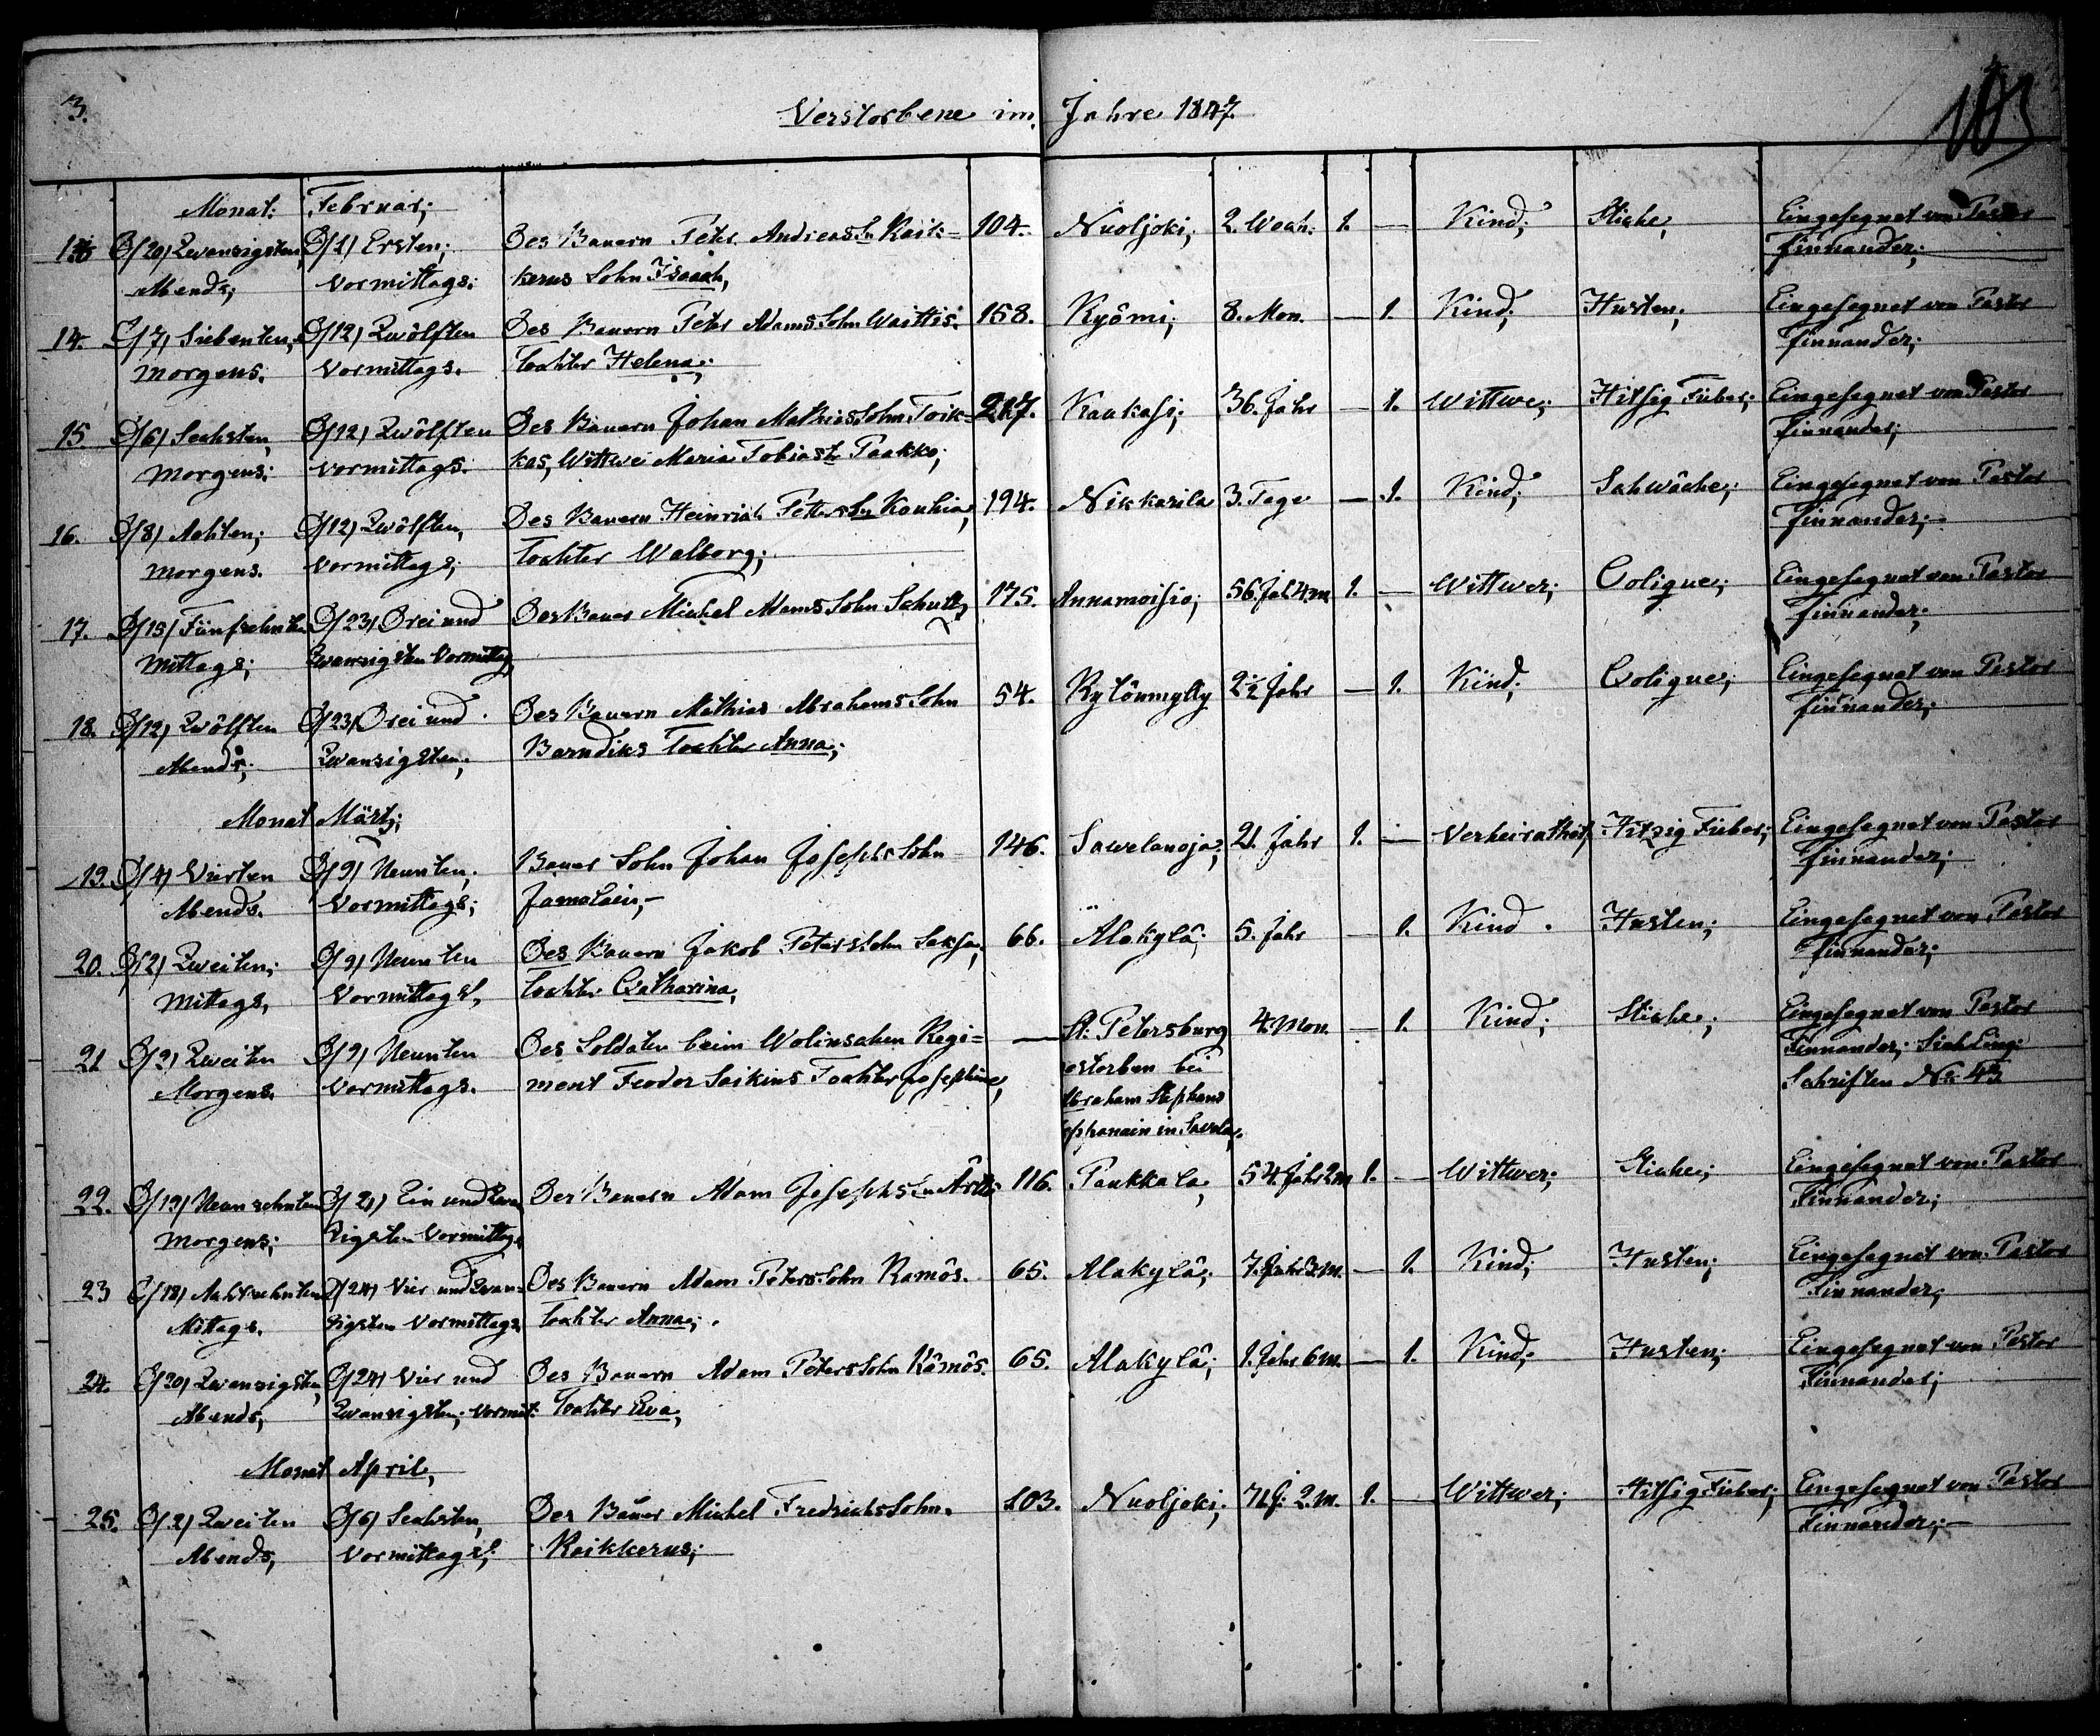 3.
Verstorbene im Jahre 1847.
103
Monat: Februar;
13. D/20/ Zwanzigsten, D/1/ Ersten; Des Bauern Peter Andreas S. Raik= 104. Nuoljoki; 2. Woch. 1. — Kind; Stiche, Eingesegnet von Pastor
Abends; Vormittags; kerus Sohn Isaach, Finnander;
14. D/7/ Siebenten, D/12/ Zwölften Des Bauern Peter Adams Sohn Waittis. 158. Kyömi; 8. Mon. — 1. Kind; Husten; Eingesegnet von Pastor
Morgens. Vormittags. Tochter Helena; Finnander;
15 D/6/ Sechsten, D/12/ Zwölften Des Bauern Johan Mathias Sohn Toik= 217. Kaukasi; 36. Jahr — 1. Wittwe; Hitsig Fieber; Eingesegnet von Pastor
Morgens; Vormittags. kas, Wittwe Maria Tobias tr Paakko; Finnander;
16. D/8/ Achten; D/12/ Zwölften, Des Bauern Heinrich Peters Sn Kouhia, 194. Nikkarila 3. Tage — 1. Kind; Schwäche; Eingesegnet von Pastor
Morgens. Vormittags; Tochter Walborg; Finnander;
17. D/15/ Fünfzehnten D/23/ Drei und Der Bauer Michel Adams Sohn Schultz 175. Annamoisio; 56. Jah 4 m 1. — Wittwer; Colique; Eingesegnet von Pastor
Mittags; Zwanzigsten Vormittag Finnander;
18. D/12/ Zwölften D/23/ Drei und Des Bauern Mathias Abrahams Sohn 54. Rytönmylly 2½ Jahr — 1. Kind; Colique; Eingesegnet von Pastor
Abends; Zwanzigsten; Barndiks Tochter Anna; Finnander;
Monat Märtz;
19. D/4/ Vierten D/9/ Neunten; Bauer Sohn Johan Josephs Sohn 146. Sawelanoja; 21. Jahr 1. — Verheirathet, Hitzig Fieber; Eingesegnet von Pastor
Abends. Vormittags; Jamalain,— Finnander;
20. D/2/ Zweiten; D/9/ Neunten Des Bauern Jakob Peters Sohn Saksa, 66. Alakylä; 5. Jahr — 1. Kind. Husten; Eingesegnet von Pastor
Mittags, Vormittags, Tochter Catharina, Finnander;
21 D/2/ Zweiten D/9/ Neunten Des Soldaten beim Wolinschen Regi= — St. Petersburg 4. Mon. — 1. Kind; Stiche; Eingesegnet von Pastor
Morgens. Vormittags. ment Feodor Saikins Tochter Josephine, estorben bei Finnander; Sieh Ling:
Abraham Stephans Schriften No 43
ephanain in Savola.
22. D/19/ Neunzehnten D/21/ Ein und Zwan Der Bauern Adam Josephs Sn Ärtti 116. Paukkala, 54. Jahr 2m 1. — Wittwer; Stiche; Eingesegnet von Pastor
Morgens; zigsten Vormittags Finnander;
23 D/18/ Achtzehnten D/24/ Vier und Zwan= Des Bauern Adam Peters Sohn Ramös. 65. Alakylä; 7. Jahr 3. M. — 1. Kind; Husten; Eingesegnet von Pastor
Mittags. zigsten Vormittags, Tochter Anna; Finnander;
24. D/20/ Zwanzigsten, D/24/ Vier und Des Bauern Adam Peters Sohn Rämös. 65. Alakylä; 1. Jahr 6 m. — 1. Kind; Husten; Eingesegnet von Pastor
Abends, Zwanzigsten; Vormit: Tochter Eva, Finnander;
Monat April,
25. D/2/ Zweiten D/6/ Sechsten, Der Bauer Michel Fredrichs Sohn. 103. Nuoljoki; 71 J: 2. M. 1. — Wittwer; Hitsig Fieber; Eingesegnet von Pastor
Abends, Vormittags; Raikkerus; Finnander;—